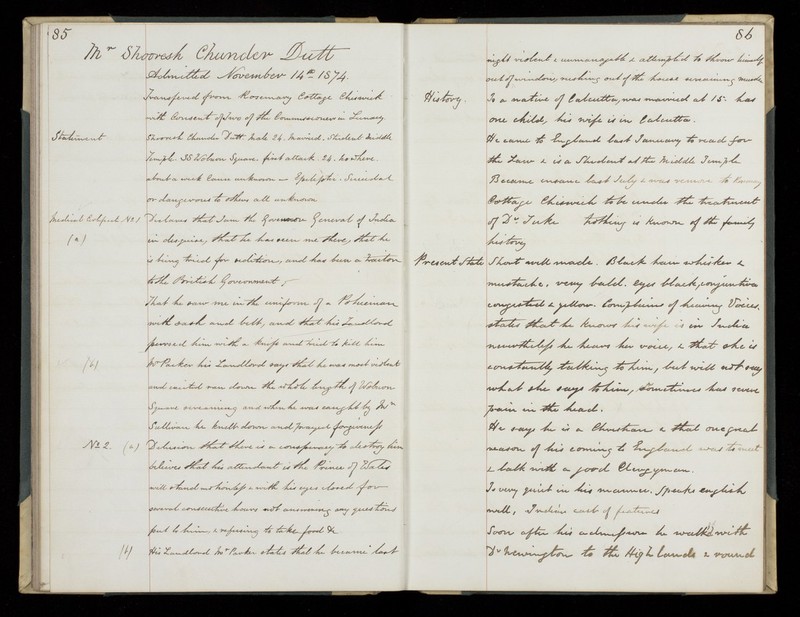 85
Mr Shooresh Chunder Dutt
Admitted November 14th 1874.
Transferred from Rosemary Cottage Chiswick
with Consent of two of the Commissioners in Lunacy.
Statement
Shooresh Chunder Dutt. Male 24. Married. Student Middle
Temple. 35 Woburn Square. first attack. 24. nowhere.
about a week Cause unknown — Epileptic. Suicidal
or dangerous to others all unknown
Medical Certificate No 1
(a)
Declares that I am the Governor General of India
in disguise, that he has seen me there, that he
is being tried for sedition, and has been a traitor
to the British Government.
That he saw me in the uniform of a Policeman
with sash and belt, and that his Landlord
pierced him with a knife and tried to kill him
(b)
Mr Parker his Landlord says that he was most violent
and excited ran down the whole length of Woburn
Square screaming and when he was caught by Mr
Sullivan he knelt down and prayed forgiveness
No 2. (a)
Delusion that there is a conspiracy to destroy him
believes that his attendant is the Prince of Wales
will stand motionless with his eyes closed for
several consecutive hours not answering any questions
put to him, & refusing to take food &c
(b)
His Landlord Mr Parker states that he became last
86
night violent & unmanageable & attempted to throw himself
out of windows, rushing out of the house screaming murder
History.
Is a native of Calcutta, was married at 15. has
one child, his wife is in Calcutta.
He came to England last January to read for
the Law & is a Student at the Middle Temple
Became insane last July & was to
Cottage Chiswick to be under the treatment
of Dr Tuke Nothing is known of the family
history
Present State
Short well made. Black hair whisker &
mustache, very bald. eyes black, conjunctiva
congested & yellow. Complains of hearing Voices.
states that he knows his wife is in India
nevertheless he hears her voice, & that she is
constantly talking to him, but will not say
what she says to him, sometimes has severe
pain in the head.
He says he is a Christian & that one great
reason of his coming to England was to meet
& talk with a good Clergyman.
Is very quiet in his manner. Speaks english
well, Indian cast of features
Soon after his admission he walked with
Dr Newington to the Highlands & round